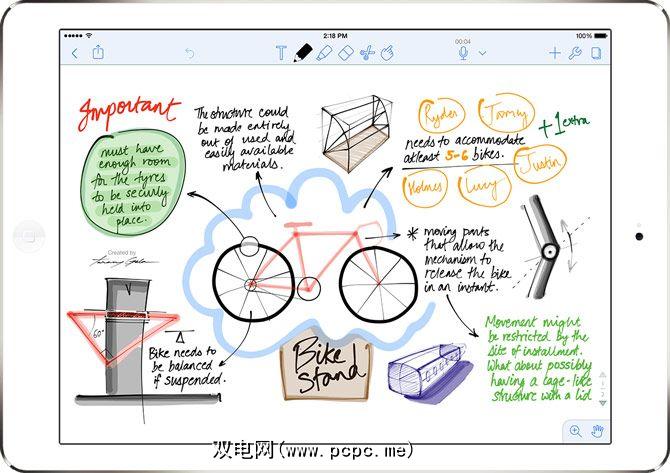 2:18 PM
100%
00:04
T
Important
must have
enough room
for the tyres
to be securly
held into
place.
The structure could
be made entirely
out of used and
easily available
materials.
Ryder
Tammy
+1 extra
needs to accommodate
atleast 5-6 bikes.
Justin
Holmes
Lucy
* moving parts
that allow the
mechanism to
release the bike
in an instant.
Created by
60°
Bike needs to
be balanced
if suspended.
Bike
Stand
Movement might
be restricted by the
site of installment.
What about possibly
having a cage-like
structure with a lid
双电网(www.pcpc.me)